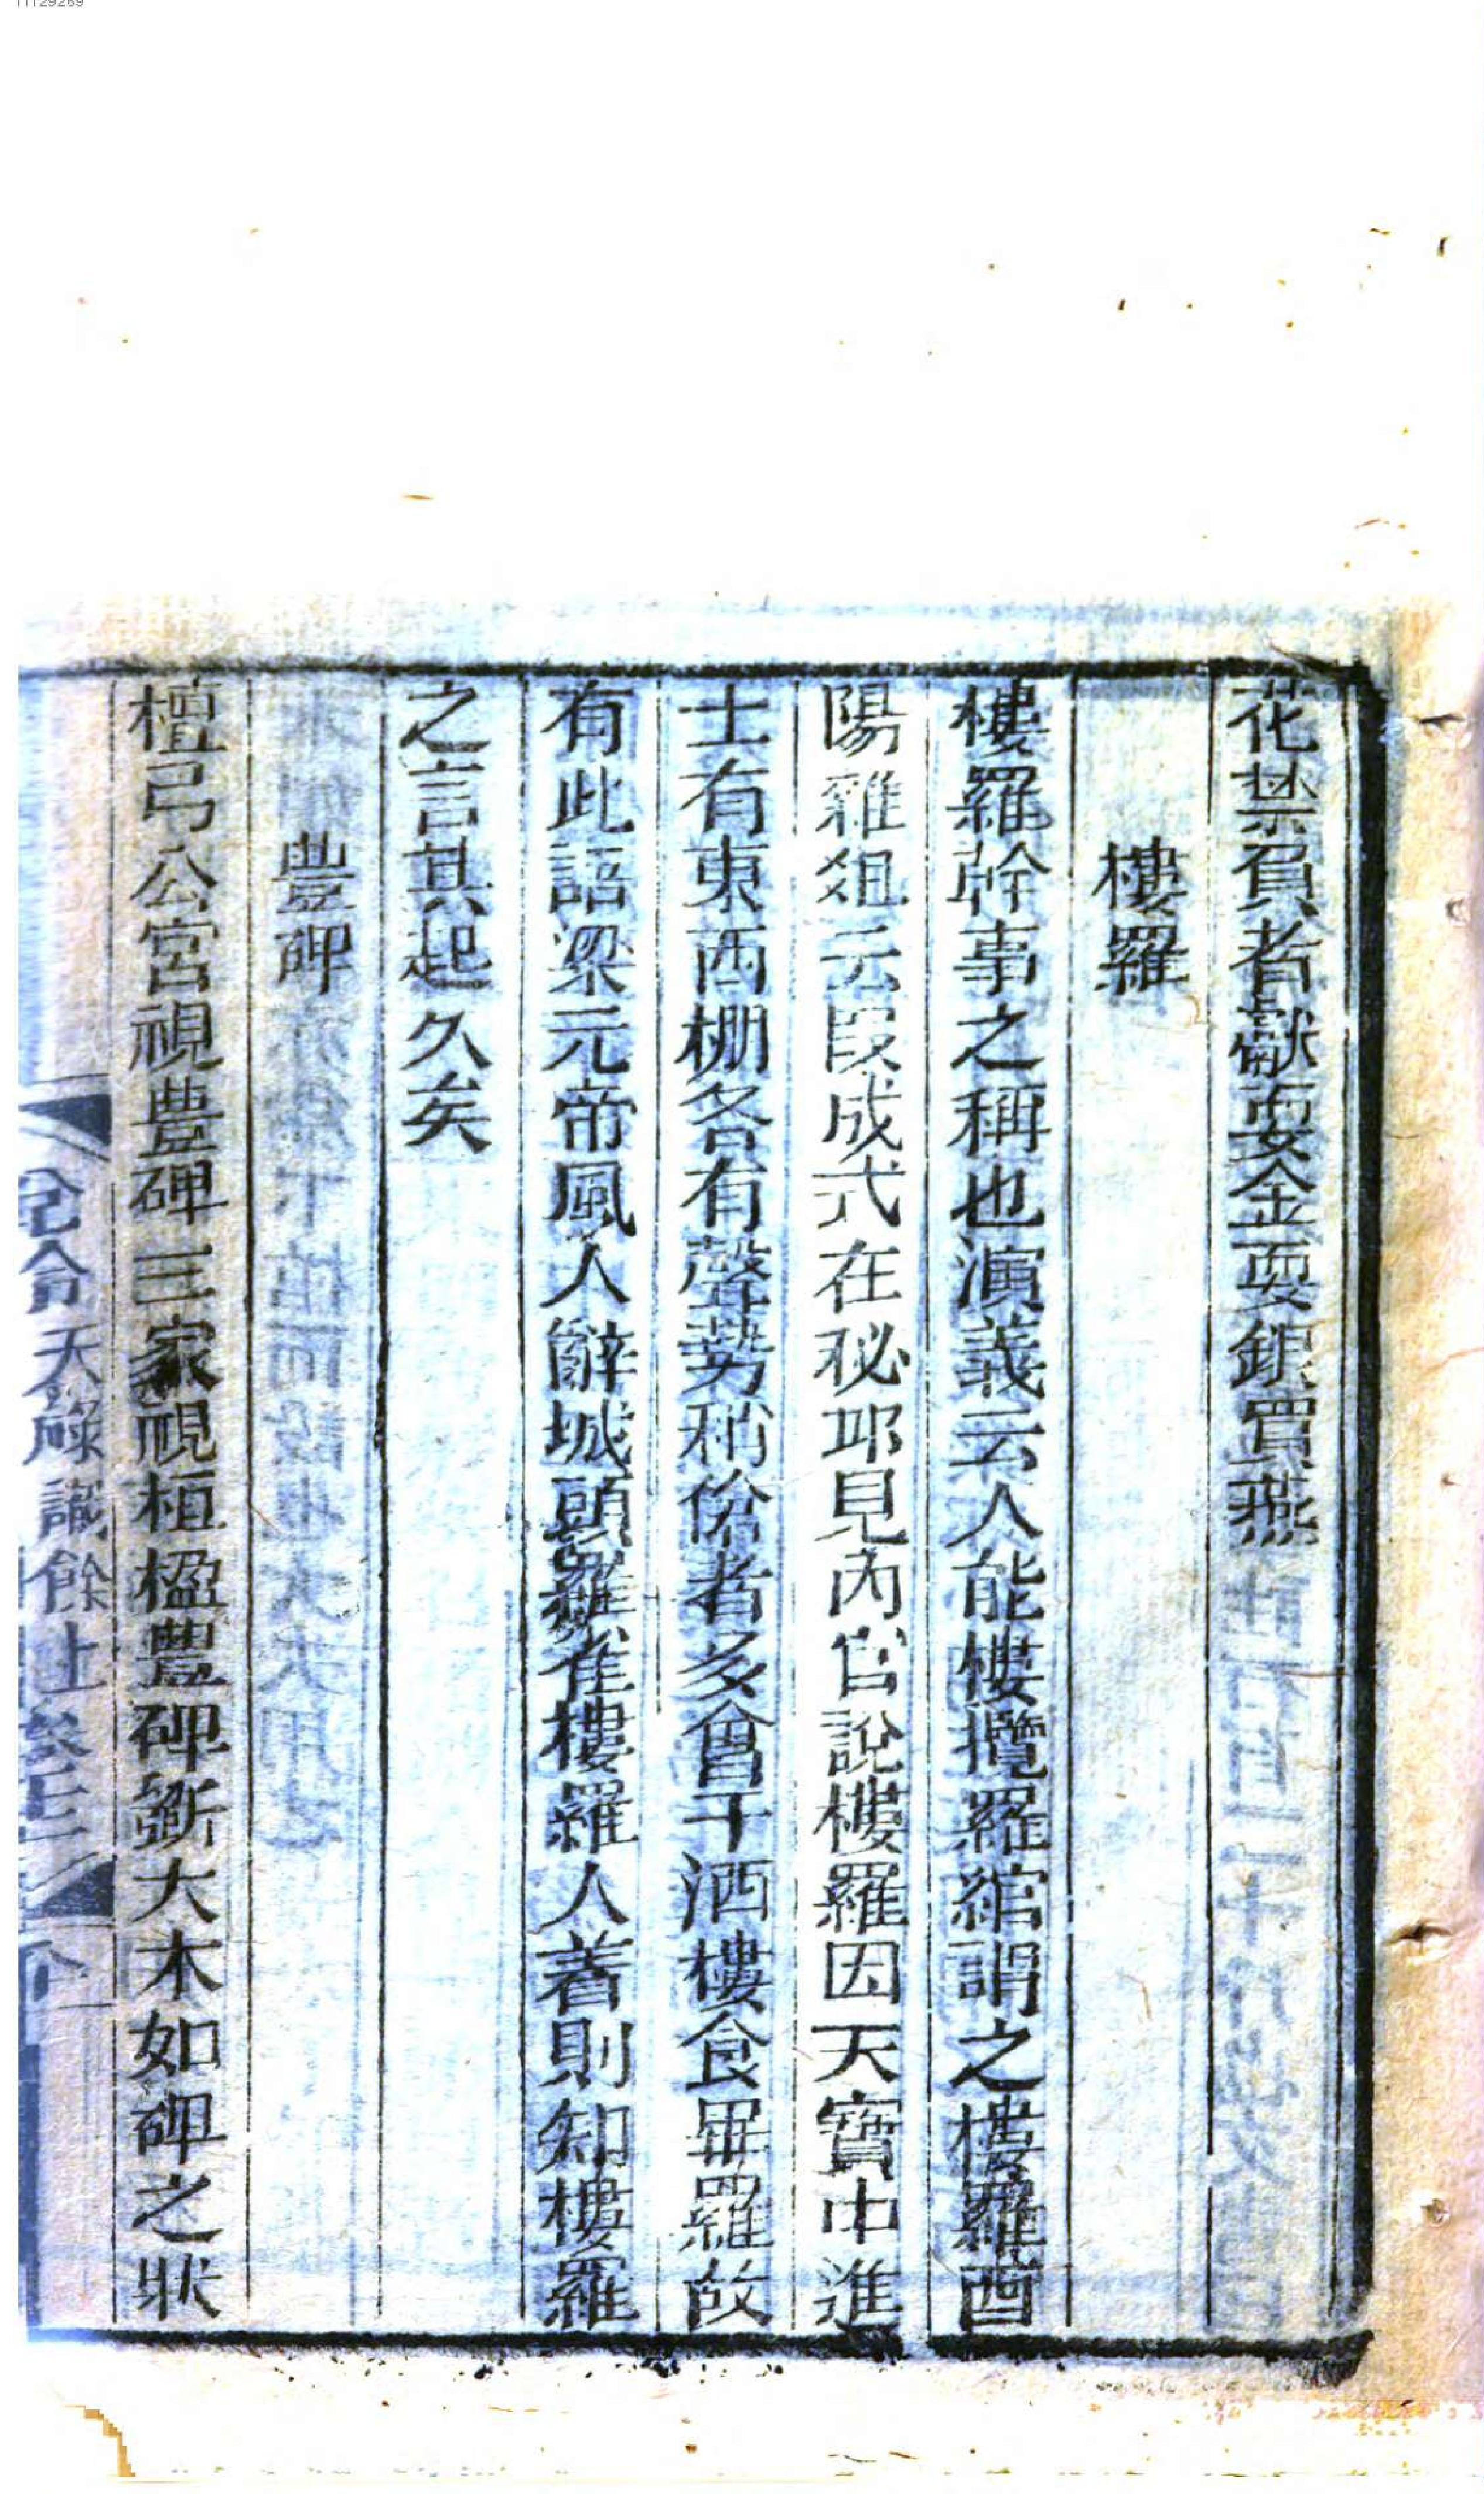 11129269
花禁負者獻耍金耍銀買燕
樓羅
樓羅幹事之稱也演義云人能樓攬羅綰謂之樓羅酉
陽雜俎云段成式在秘邱見內官說樓羅因天寶中進
士有東西棚各有聲勢稍傖者多會于酒樓食畢羅故
有此語梁元帝風人辭城頭網雀樓羅人著則知樓羅
之言其起久矣
豐碑
檀弓公宮視豐碑三家視桓楹豐碑斲大木如碑之狀
天祿識餘上